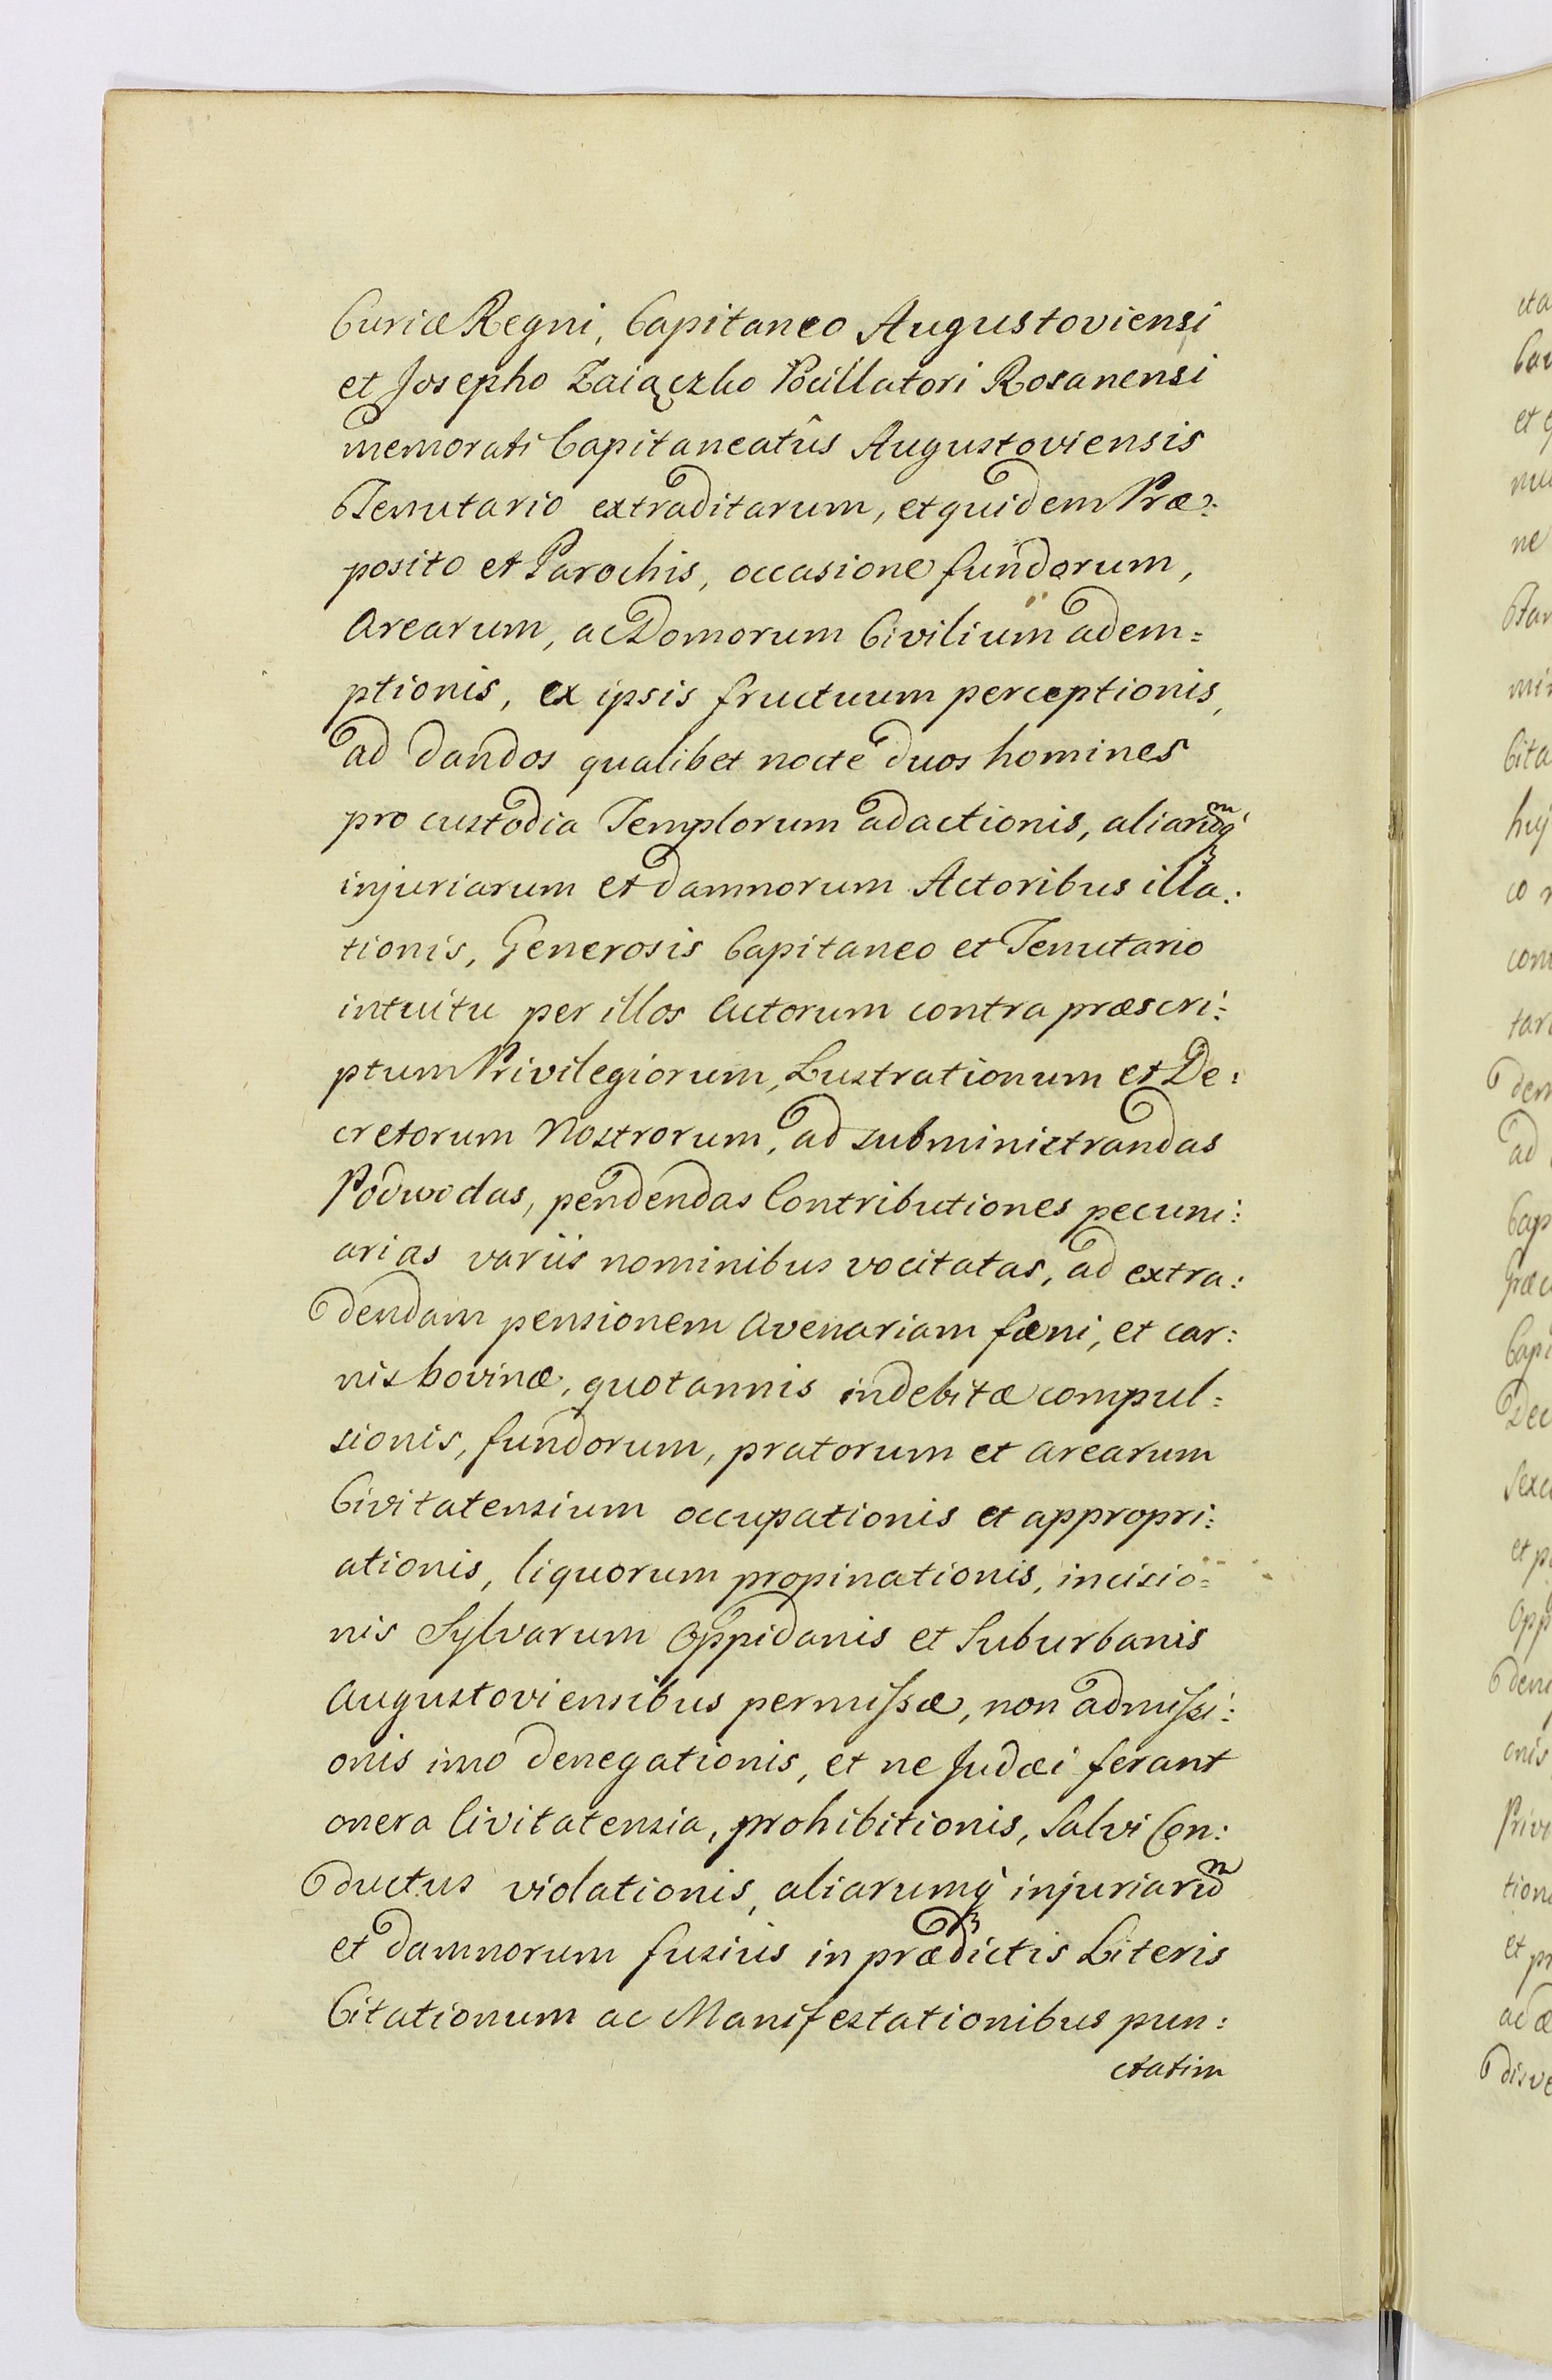 Curiæ Regni, Capitaneo Augustoviensi
et Josepho Zaiączko Pocillatori Rosanensi
memorati Capitaneatûs Augustoviensis
Tenutario extraditarum, et quidem Præ:
posito et Parochis, occasione fundorum,
Arearum, ac Domorum Civilium adem=
ptionis, ex ipsis fructuum perceptionis,
ad dandos qualibet nocte duos homines
pro custodia Templorum adactionis, aliarumq́
injuriarum et damnorum Actoribus illa:
tionis, Generosis Capitaneo et Tenutario
intuitu per illos Actorum contra præscri:
ptum Privilegiorum, Lustrationum et De:
cretorum Nostrorum, ad subministrandas
Podwodas, pendendas Contributiones pecuni:
arias variis nominibus vocitatas, ad extra:
dendam pensionem Avenariam fœni, et car:
nis bovinæ, quotannis indebitæ compul=
sionis, fundorum, pratorum et arearum
Civitatensium occupationis et appropri:
ationis, liquorum propinationis, incisio=
nis Sylvarum Oppidanis et Suburbanis
Augustoviensibus permissæ, non admissi:
onis imo denegationis, et ne Judæi ferant
onera Civitatensia, prohibitionis, Salvi Con:
ductus violationis, aliarumq́ injuriarum
et damnorum fusius in prædictis Literis
Citationum ac Manifestationibus pun:
ctatim